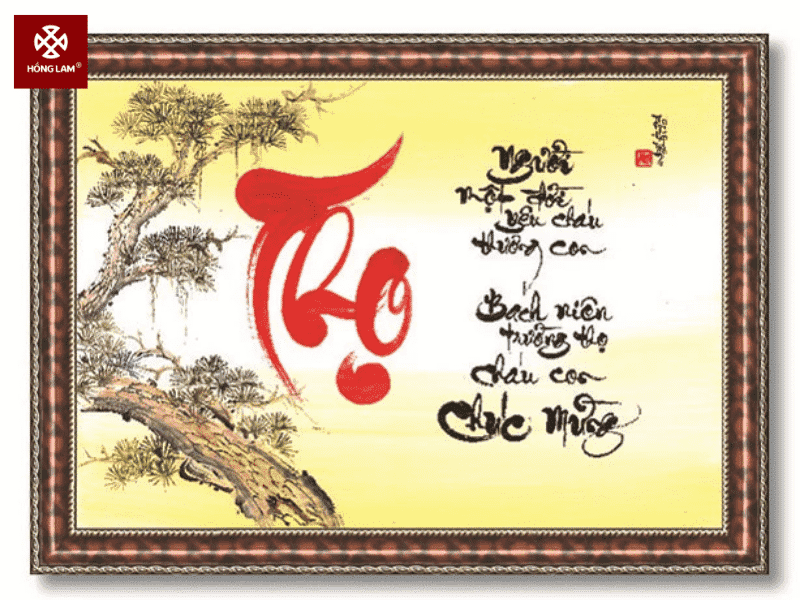 HỒNG LAM®
Thọ
Người
một đời
yêu cháu
thương con
Bách niên
trường thọ
cháu con
Chúc mừng